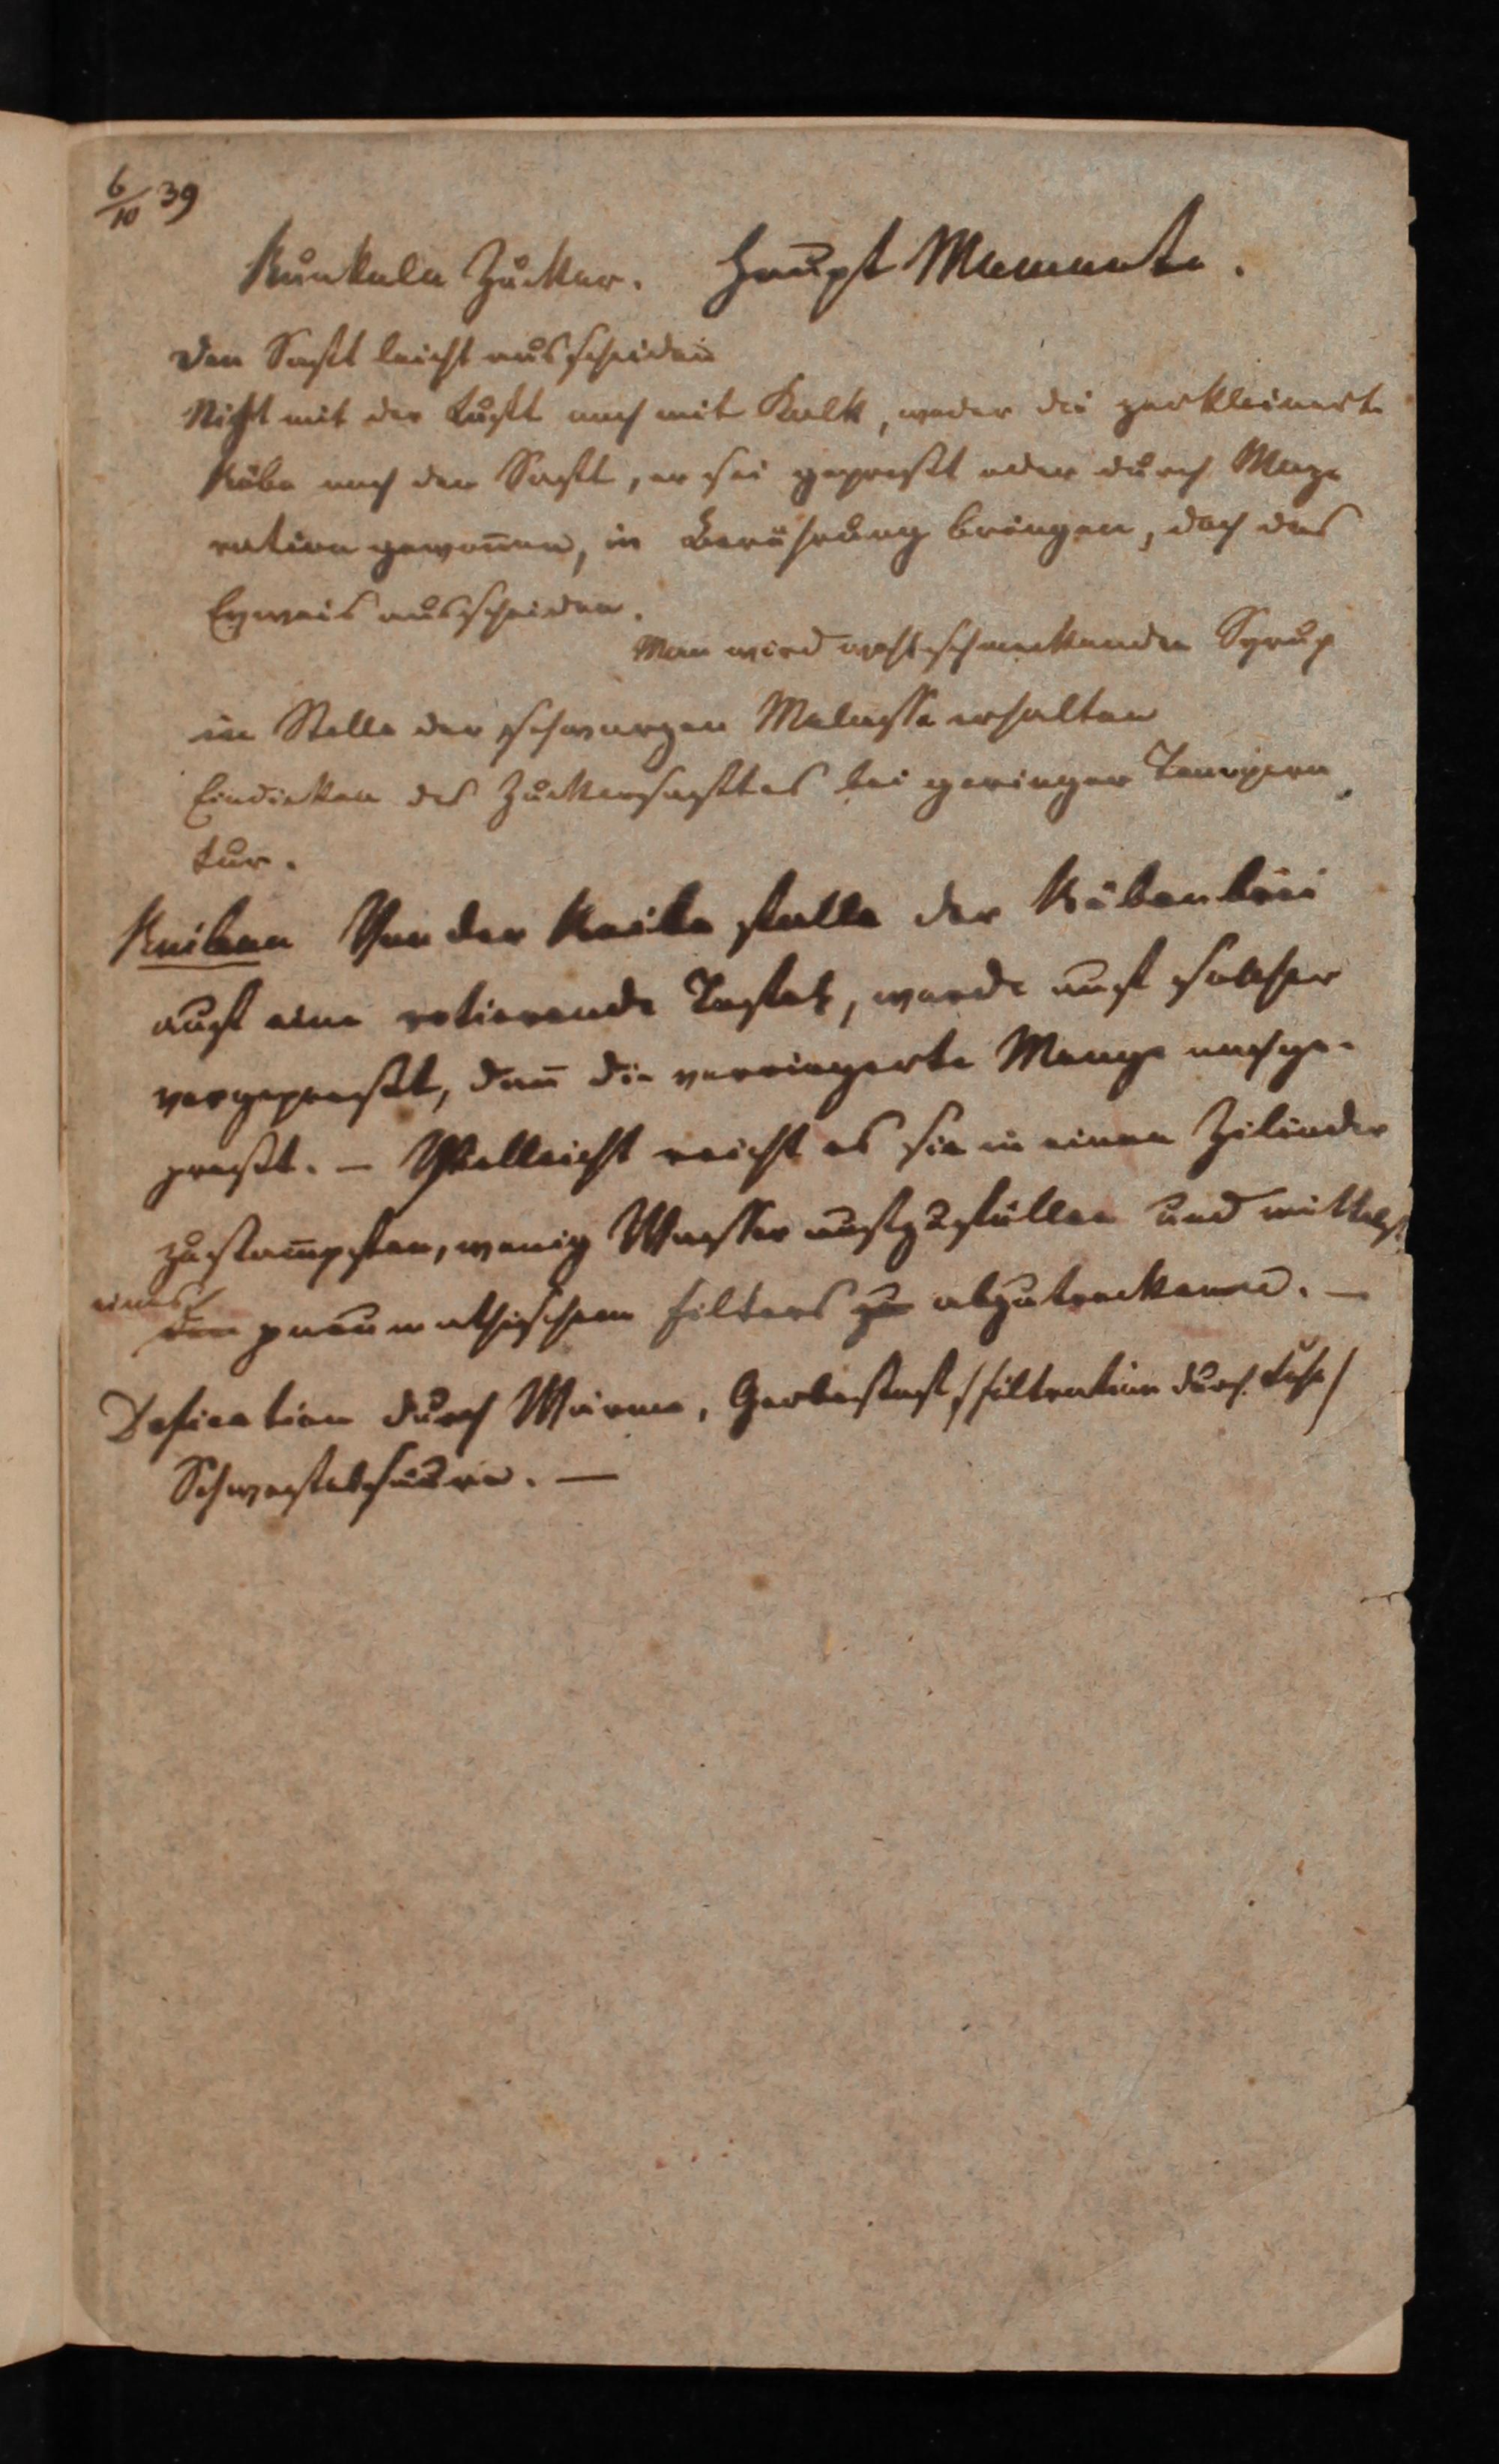 6/10 39
Runkeln Zucker. Haupt Momente.
Den Saft leicht ausscheiden
Nicht mit der Luft noch mit Kalk, weder die zerkleinerte
Rübe noch den Saft, er sei gepreßt oder durch Maze
ration gewonnen, in Berührung bringen, doch das
Eyweis ausscheiden.
Man wird wohlschmeckenden Syrup
in Stelle der schwarzen Melasse erhalten
Eindicken des Zuckersaftes bei geringer Tempera
tur.
Reiben Von der Reibe falle der Rübenbrei
auf eine rotierende Tafel, werde auf solcher
vorgepreßt, dann die verringerte Menge nachge-
preßt. – Vielleicht reicht es sie in einen Zilinder
zustampfen, wenig Wasser aufzufüllen und mittelst
eines
den pneumathischen Filters zu abzutrocknen. –
Defication durch Wärme, Gerbestoff, /Filtration durch Lohe/
Schwefelsäure. –